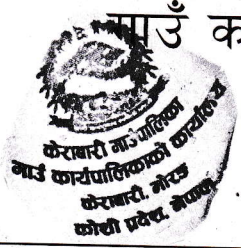 गाउँ क
केराबारी गाउँपालिका
गाउँ कार्यपालिकाको कार्यालय
केराबारी, मोरङ
कोशी प्रदेश, नेपाल